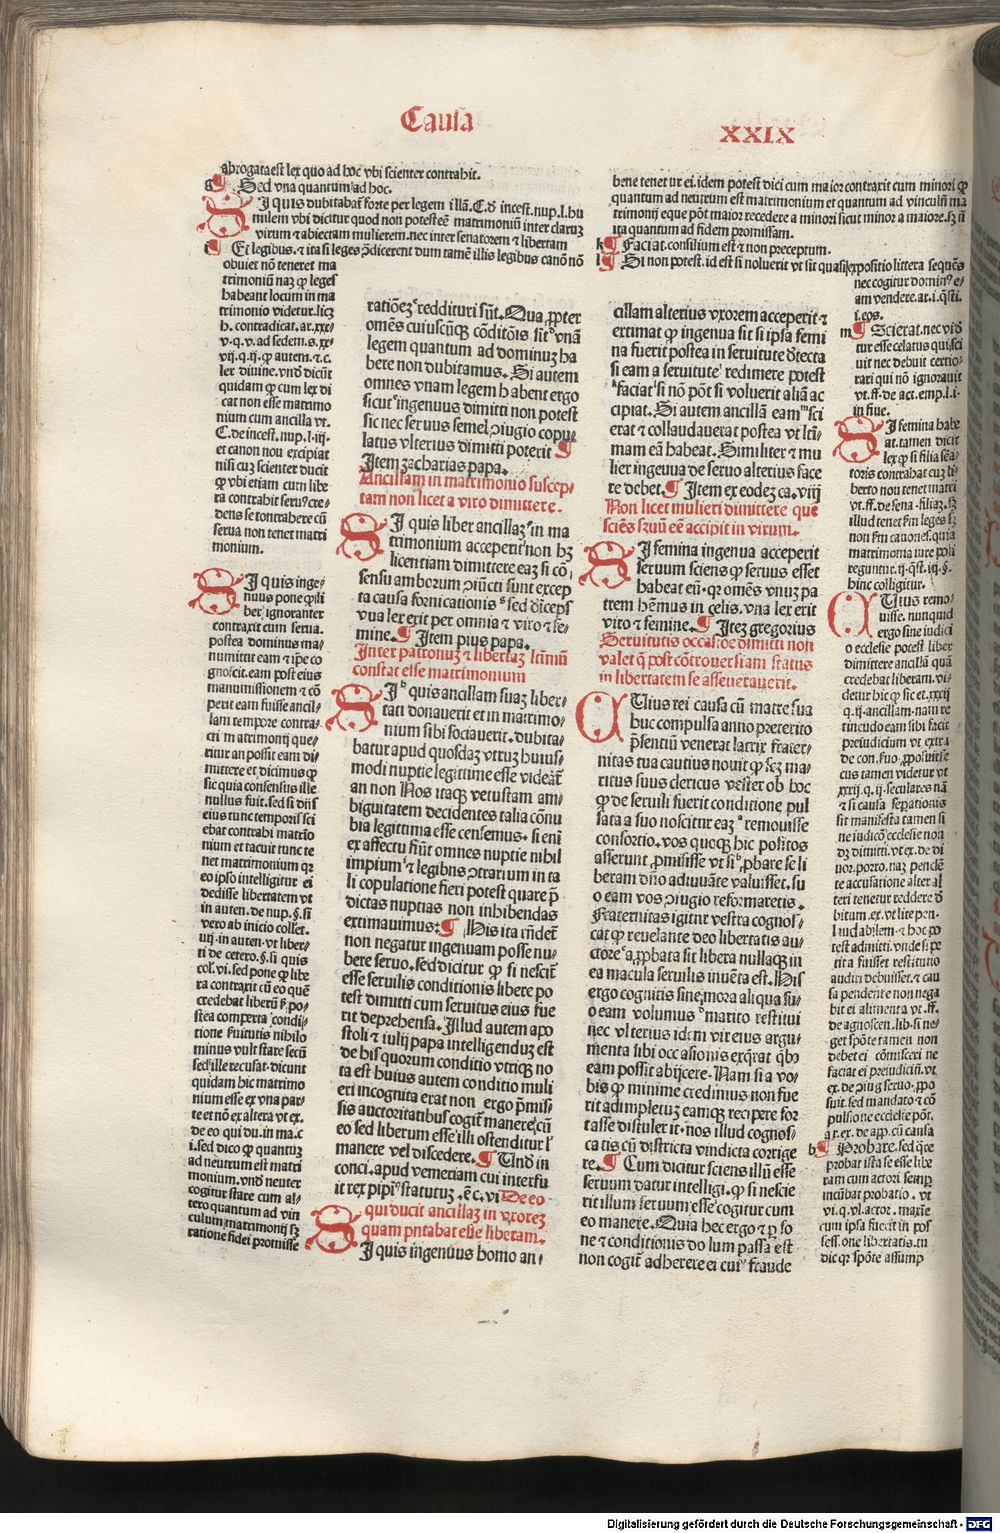 Causa
XXIX
abrogata est lex quo ad hoc vbi scienter contrahit.
Sed vna quantum ad hoc.
SI quis dubitabat̄ forte per legem illā. C. d̄ incest. nup. l. hu
milem vbi dicitur quod non potest eē matrimoniū inter clarū
virum ⁊ abiectam mulierem. nec inter senatorem ⁊ libertam
Et legibus. ⁊ ita si leges ↄ̄dicerent dum tamē illis legibus canō nō
obuiet nō teneret ma
trimoniū naȝ ꝙ leges
habeant locum in ma
trimonio videtur. licȝ
h. contradicat. ar. xxx
v. q. v. ad sedem. s. xx
vij. q. ij. ꝙ autem. ⁊. c.
lex diuine. vnd̄ dicūt
quidam ꝙ cum lex di
cat non esse matrimo
nium cum ancilla vt.
C. de incest. nup. l. iij.
et canon nou excipiat
nisi cuȝ scienter ducit
ꝙ vbi etiam cum libe
ra contrahit seruꝰ cre
dens se contrahere cū
serua non tenet matri
monium.
SI quis inge
nuus pone ꝙ li
ber ignoranter
contraxit cum serua.
postea dominus ma
numittit eam ⁊ ip̄e co
gnoscit. eam post eius
manumissionem ⁊ cō
perit eam fuisse ancil
lam tempore contra
cti matrimonij que
ritur an possit eam di
mittere et dicimus ꝙ
sic quia consensus ille
nullus fuit. sed si dūs
eius tunc temporis sci
ebat contrahi matrīo
nium et tacuit tunc te
net matrimonium qr
eo ipso intelligitur ei
dedisse libertatem vt
in auten. de nup. §. si
vero ab inicio collet.
iiij. in auten. vt liber
ti de cetero. §. si quis
col. vi. sed pone ꝙ libe
ra contraxit cū eo quē
credebat liberū ⁊ po
stea comperta condi
tione ẜuitutis nihilo
minus vult stare secū
sed ille recusat. dicunt
quidam hic matrimo
nium esse ex vna par
te et nō ex altera vt ex.
de eo qui du. in ma. c
i. sed dico ꝙ quantuȝ
ad neutrum est matri
monium. vnd̄ neuter
cogitur stare cum al
tero quantum ad vin
culum matrimonij sȝ
ratione fidei promisse
ratiōeȝ redditurī sūt. Qua ꝓpter
omēs cuiuscūqȝ cōditōis sūt vnā
legem quantum ad dominuȝ ha
bere non dubitamus. Si autem
omnes vnam legem habent ergo
sicut ingenuus dimitti non potest
sic nec seruus semel ↄiugio copu
latus vlterius dimitti poterit
Item zacharias papa.
Ancillam in matrimonio suscep
tam non licet a viro dimittere.
SI quis liber ancillaȝ in ma
trimonium acceperit non hȝ
licentiam dimittere eaȝ si cō
sensu amborum ↄiūcti sunt excep
ta causa fornicationis sed d̄iceps
vna lex erit per omnia ⁊ viro ⁊ fe
mine. Item pius papa.
Inter patronuȝ ⁊ libertaȝ ltimū
constat esse matrimonium
SI quis ancillam suaȝ liber
tati donauerit et in matrimo
nium sibi sociauerit. dubita
batur apud quosdaȝ vtruȝ huius
modi nuptie legittime esse videāt̄
an non Nos itaqȝ vetustam am
biguitatem decidentes talia cōnu
bia legitima esse censemus. si enī
ex affectu fiūt omnes nuptie nihil
impium ⁊ legibus ↄtrarium in ta
li copulatione fieri potest quare p̄
dictas nuptias non inhibendas
extimauimus. His ita rn̄det̄
non negatur ingenuam posse nu
bere seruo. sed dicitur ꝙ si nescit̄
esse seruilis conditionis libere po
test dimitti cum seruitus eius fue
rit deprehensa. Illud autem apo
stoli ⁊ iulij papa intelligenduȝ est
de his quorum conditio vtriqȝ no
ta est huius autem conditio muli
eri incognita erat non ergo p̄mis
sis auctoritatibus cogit̄ manere cū
eo sed liberum esse illi ostenditur l̕
manere vel discedere. Und̄ in
conci. apud vemeriam cui interfu
it rex pipinꝰ statutuȝ. ē. c. vi De eo
qui ducit ancillaȝ in vxoreȝ
quam putabat esse liberam.
SI quis ingenuus homo an
bene tenetur ei. idem potest dici cum maior contraxit cum minori ꝙ
quantum ad neutrum est matrimonium et quantum ad vinculū ma
trimonij eque pōt maior recedere a minori sicut minor a maiore. sȝ nō
ita quantum ad fidem promissam.
Faciat. consilium est ⁊ non preceptum.
Si non potest. id est si noluerit vt sit quasi expositio littera sequēs
cillam alterius vxorem acceperit ⁊
extimat ꝙ ingenua sit si ipsa femi
na fuerit postea in seruitute d̄tecta
si eam a seruitute redimere potest
faciat si nō pōt si voluerit aliā ac
cipiat. Si autem ancillā eam sci
erat ⁊ collaudauerat postea vt ltī
mam eā habeat. Similiter ⁊ mu
lier ingenua de seruo alterius face
re debet. Item ex eodeȝ ca. viij
Non licet mulieri dimittere quē
sciēs ẜuū eē accipit in virum.
SI femina ingenua acceperit
seruum sciens ꝙ seruus esset
habeat eū. qr omēs vnuȝ pa
trem hēmus in celis. vna lex erit
viro ⁊ femine. Iteȝ gregorius
Seruitutis occasiōe dimitti non
valet q̄ post cōtrouersiam status
in libertatem se asseuerauerit.
CUius rei causa cū matre sua
huc compulsa anno preterito
p̄sentiū venerat latrix frater
nitas tua cautius nouit ꝙ scȝ ma
ritus suus clericus vester ob hoc
ꝙ de seruili fuerit conditione pul
sata a suo noscitur eaȝ remouisse
consortio. vos quoqȝ hic positos
asserunt ꝓmisisse vt si ꝓbare se li
beram dn̄o adiuuāte valuisset. su
o eam vos ↄiugio reformaretis.
Fraternitas igitur vestra cognos
cat ꝙ reuelante deo libertatis au
ctore aꝓbata sit libera nullaqȝ in
ea macula seruilis inuēta est. His
ergo cognitis sine mora aliqua su
o eam volumus marito restitui
nec vlterius idem vir eius argu
menta sibi occasionis exq̄rat qbꝰ
eam possit abijcere. Nam si a vo
bis ꝙ minime credimus non fue
rit adimpletuȝ eamqȝ recipere for
tasse distulerit. nos illud cognos
catis cū districta vindicta corrige
re. Cum dicitur sciens illū esse
seruum datur intelligi. ꝙ si nescie
rit illum seruum esse cogitur cum
eo manere. Quia hec ergo ⁊ ꝑso
ne ⁊ conditionis dolum passa est
non cogit̄ adherere ei cuiꝰ fraude
nec cogitur dominꝰ e
am vendere. ar. i. q̄sti.
i. eos.
Scierat. nec vid̄
tur esse celatus qui sci
uit nec debuit certio
rari qui nō ignorauit
vt. ff. de act. emp. l. i.
in fine.
SI femina habe
at. tamen dicit
lex ꝙ si filia sēa
toris contrahat cuȝ li
berto non tenet matrī
vt. ff. de sena. filiaȝ. sȝ
illud tenet ẜm leges sȝ
non ẜm canones. quia
matrimonia iure poli
reguntur. ij. q̄st. iij. §.
hinc colligitur.
CUius remo
uisse. nunquid
ergo sine iudici
o ecclesie potest liber
dimittere ancillā quā
credebat liberam. vi
detur hic ꝙ sic et. xxxij
q. ij. ancillam. nam re
tinendo eam sibi facit
preiudicium vt extra
de con. ẜuo. ꝓposuisse
cus tamen videtur vt
xxxij. q. ij. seculares nā
⁊ si causa sepationis
sit manifesta tamen si
ne iudicō ecclesie non
dȝ dimitti. vt ex. de di
uor. porro. naȝ penden
te accusatione alter al
teri tenetur reddere d̄
bitum. ex. vt lite pen.
l audabilem ⁊ hoc po
test admitti. vnde si pe
tita fuisset restitutio
audiri debuisset. ⁊ cau
sa pendente non nega
bit ei alimenta vt. ff.
de agnoscen. lib. si ne
get spōte tamen non
debet ei cōmisceri ne
faciat ei preiudiciū. vt
ex. de ↄiug seruo. ꝓpo
suit. sed mandato ⁊ cō
pulsione ecclesie pōt.
ar. ex. de app. cū causa
Probare. sed q̄re
probat ista se esse libe
ram cum actori semꝑ
incūbat probatio. vt
vi. q. vl. actor. maxīe
cum ipsa fuerit in pos
sessione libertatis. tu
dic qr spōte assump
Digitalisierung gefördert durch die Deutsche Forschungsgemeinschaft - DFG